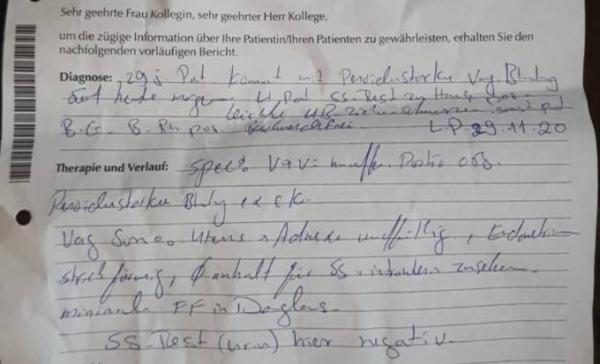 Sehr geehrte Frau Kollegin, sehr geehrter Herr Kollege,
um die zügige Information über Ihre Patientin/Ihren Patienten zu gewährleisten, erhalten Sie den
nachfolgenden vorläufigen Bericht.
Diagnose: 29 j. Pat kommt mit Periodenstarker Vag. Bltg
Seit heute morgen. U. Pat SS-Test zu Hause pos.
leichte UB ziehen
B.G. B. Rh pos. LP 29.11.20
Therapie und Verlauf: Spec: Vav: Portio o.B.
Periodenstarke Bltg ex ck.
Vag Sono: Uterus + Adnexe unauffällig, Endometrium
strichförmig, Ø anhalt für SS intrauterin zu sehen.
minimale FF in Douglas.
SS-Test (urin) hier negativ.